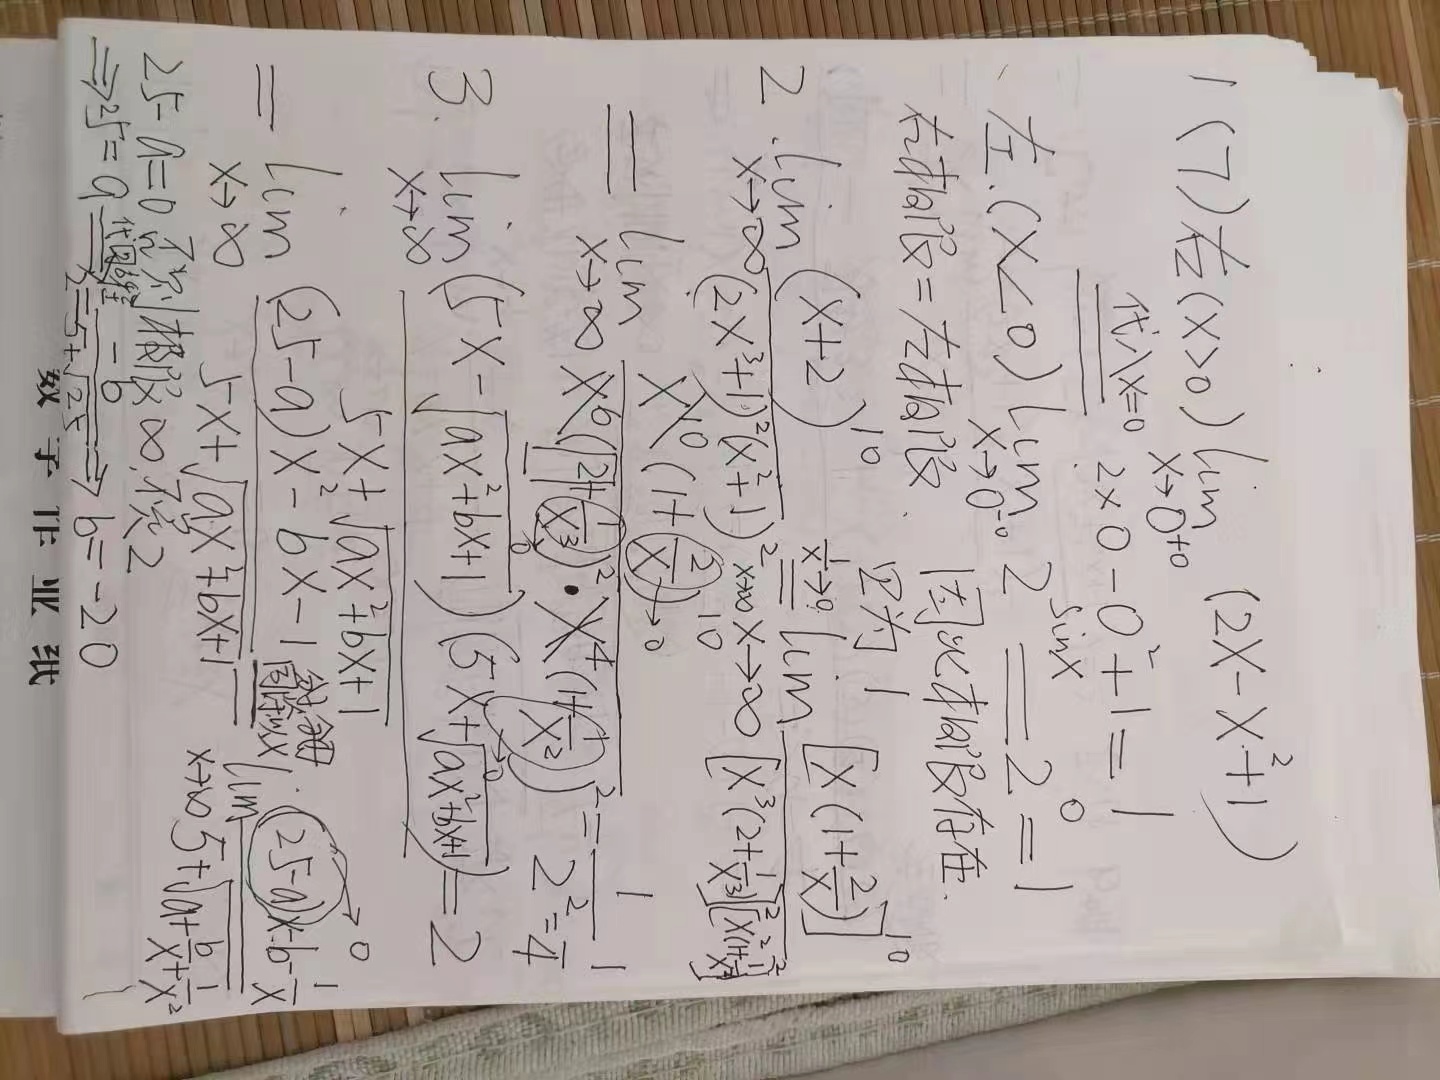 1 (7) 左(x>0) lim x→0+0 (2x-x²+1)
代入x=0 2×0-0²+1=1
左.(x<0) lim x→0-0 2^sinx = 2^0 = 1
右极限=左极限 均为1 因此极限存在.
2. lim x→∞ (x+2)^10 / (2x³+1)²(x²+1)² = lim x→∞ [x(1+2/x)]^10 / [x³(2+1/x³)]²[x²(1+1/x²)]²
= lim x→∞ x^10(1+2/x)^10 / x^6(2+1/x³)²·x^4(1+1/x²)² = 1/2² = 1/4
3. lim x→∞ (5x-√(ax²+bx+1))(5x+√(ax²+bx+1)) / 5x+√(ax²+bx+1) = 2
= lim x→∞ (25-a)x²-bx-1 / 5x+√(ax²+bx+1) = lim x→∞ (25-a)x-b-1/x / 5+√(a+b/x+1/x²)
25-a=0 否则极限∞.不是2
⇒25=a 2=-b/5+√25 ⇒ b=-20
数学作业纸